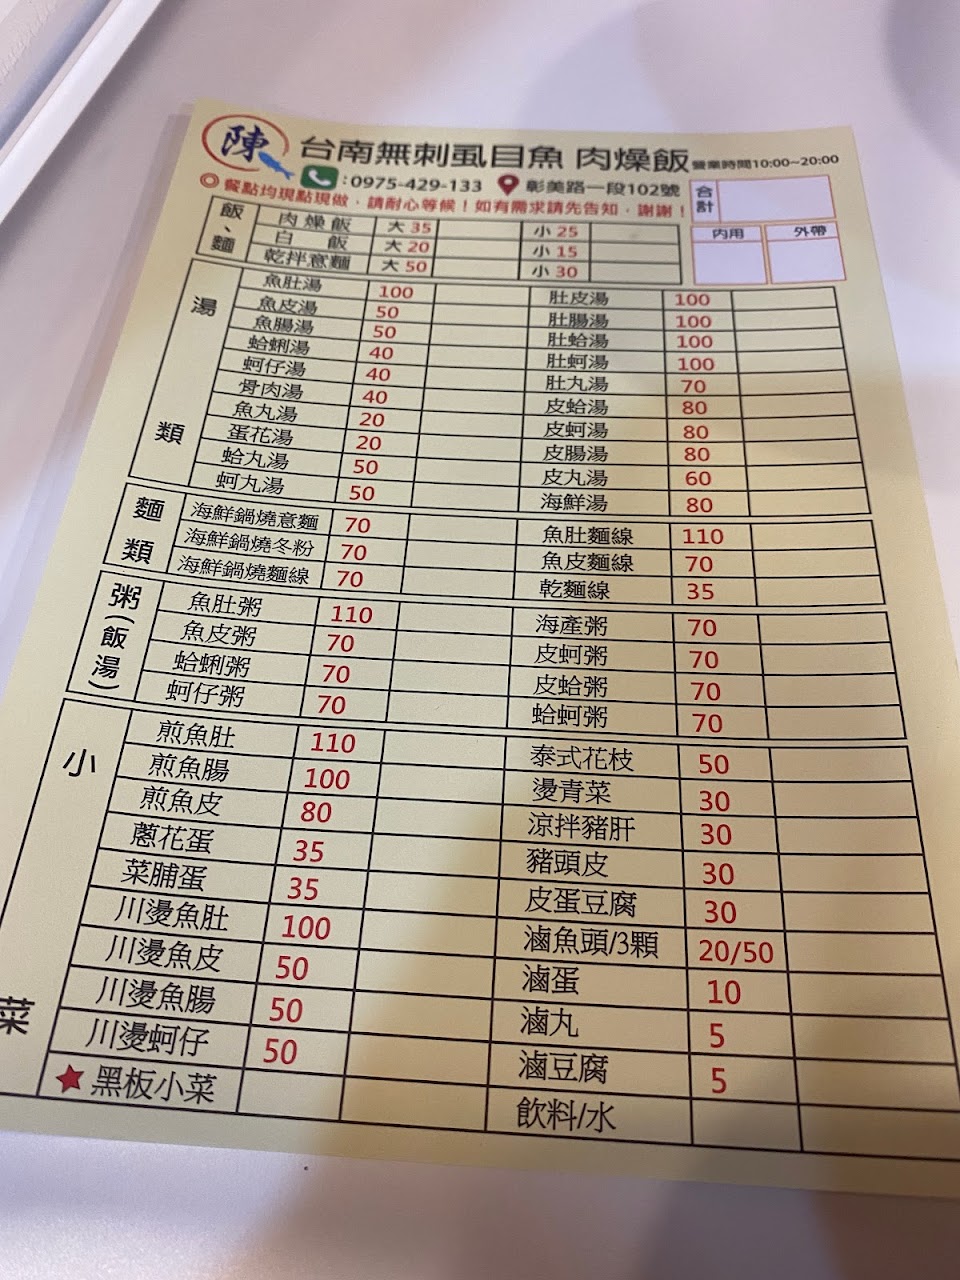 陳 台南無刺虱目魚 肉燥飯 營業時間10:00~20:00
:0975-429-133 彰美路一段102號
◎餐點均現點現做，請耐心等候！如有需求請先告知，謝謝！
合計
內用 外帶
飯、麵
肉燥飯 大 35 小 25
白飯 大 20 小 15
乾拌意麵 大 50 小 30
湯類
魚肚湯 100 肚皮湯 100
魚皮湯 50 肚腸湯 100
魚腸湯 50 肚蛤湯 100
蛤蜊湯 40 肚蚵湯 100
蚵仔湯 40 肚丸湯 70
骨肉湯 40 皮蛤湯 80
魚丸湯 20 皮蚵湯 80
蛋花湯 20 皮腸湯 80
蛤丸湯 50 皮丸湯 60
蚵丸湯 50 海鮮湯 80
麵類
海鮮鍋燒意麵 70 魚肚麵線 110
海鮮鍋燒冬粉 70 魚皮麵線 70
海鮮鍋燒麵線 70 乾麵線 35
粥(飯湯)
魚肚粥 110 海產粥 70
魚皮粥 70 皮蚵粥 70
蛤蜊粥 70 皮蛤粥 70
蚵仔粥 70 蛤蚵粥 70
小菜
煎魚肚 110 泰式花枝 50
煎魚腸 100 燙青菜 30
煎魚皮 80 涼拌豬肝 30
蔥花蛋 35 豬頭皮 30
菜脯蛋 35 皮蛋豆腐 30
川燙魚肚 100 滷魚頭/3顆 20/50
川燙魚皮 50 滷蛋 10
川燙魚腸 50 滷丸 5
川燙蚵仔 50 滷豆腐 5
★黑板小菜 飲料/水